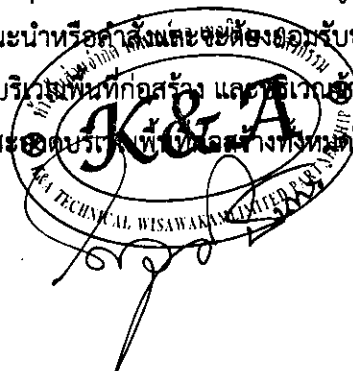 ะนำหรือคำสั่งและจะต้องยอมรับ
บริเวณพื้นที่ก่อสร้าง และบริเวณ
สะอาดบริเวณพื้นที่ก่อสร้างทั้งหมด
ห้างหุ้นส่วนจำกัด
K&A
K&A TECHNICAL WISAWAKAM LIMITED PARTNERSHIP